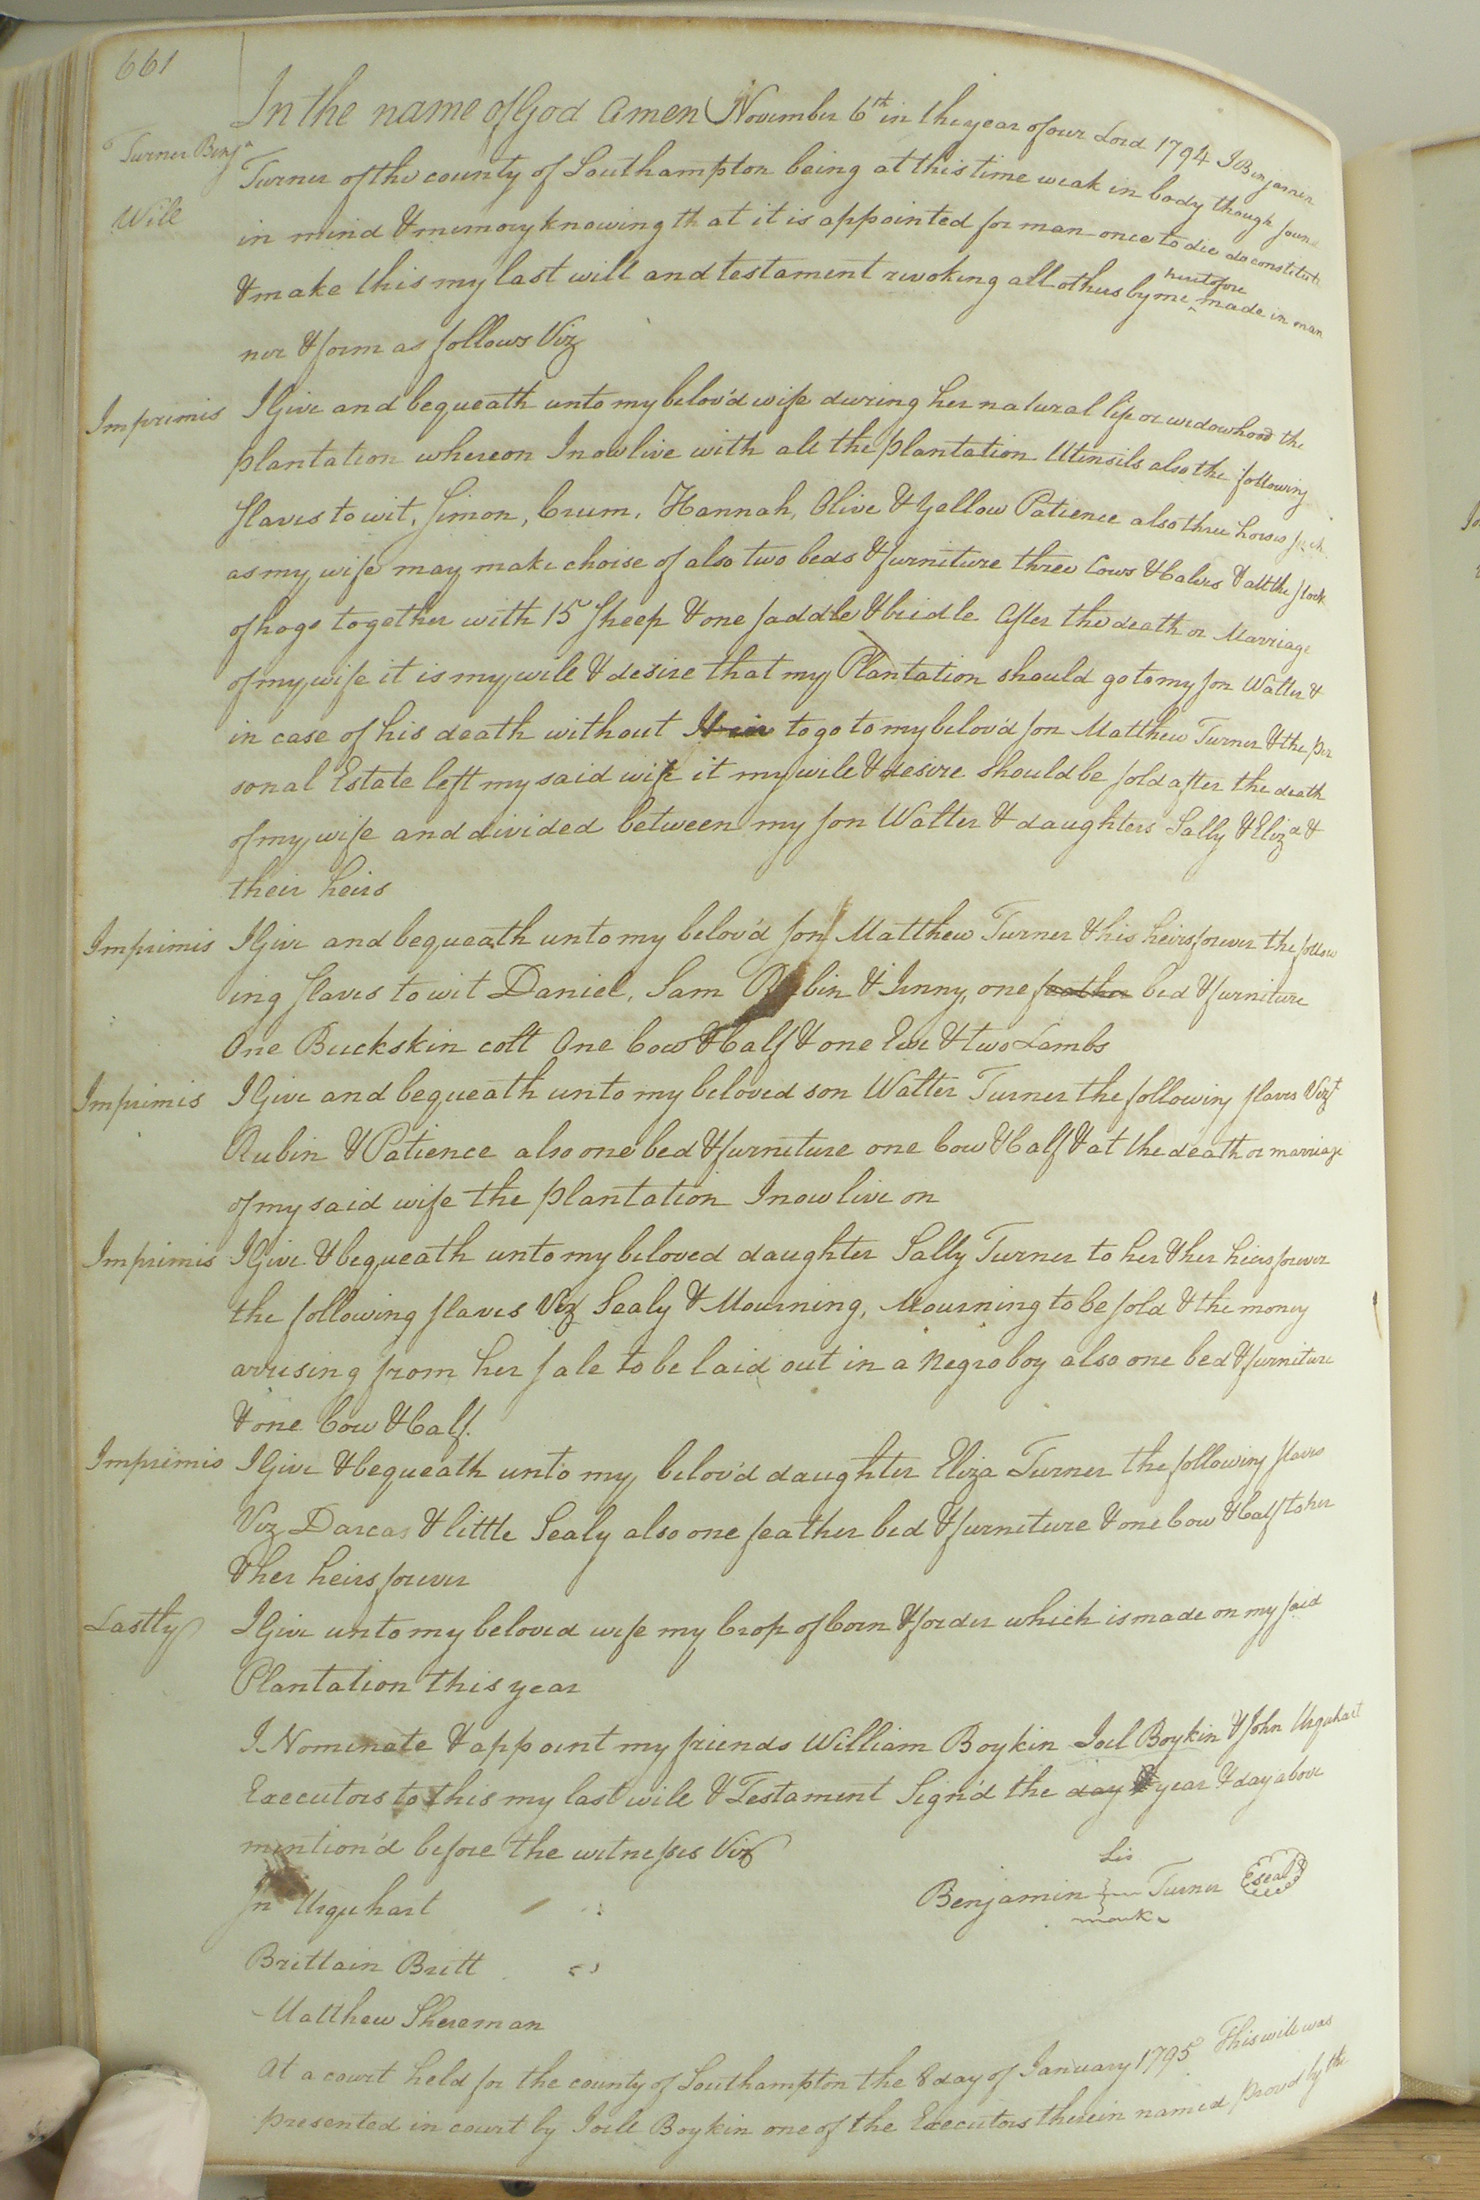 661
In the name of God Amen November 6th in the year of our Lord 1794 I Benjamin
Turner Benja
Turner of the county of Southampton being at this time weak in body though sound
Will
in mind & memory knowing that it is appointed for man once to die do constitute
& make this my last will and testament revoking all others by me heretofore made in man
ner & form as follows Viz
Imprimis I Give and bequeath unto my belov'd wife during her natural life or widowhood the
plantation whereon I now live with all the plantation Utensils also the following
slaves to wit, Simon, Crum, Hannah, Olive & Yellow Patience also three horses such
as my wife may make choise of also two beds & furniture three Cows & Calves & all the stock
of hogs together with 15 Sheep & one saddle & bridle After the death or Marriage
of my wife it is my will & desire that my Plantation should go to my son Walter &
in case of his death without Heir to go to my belov'd son Matthew Turner & the per
sonal Estate left my said wife it my will & desire should be sold after the death
of my wife and divided between my son Walter & daughters Sally & Eliza &
their heirs
Imprimis I Give and bequeath unto my belov'd son Matthew Turner & his heirs forever the follow
ing slaves to wit Daniel, Sam Rubin & Jinny, one feather bed & furniture
One Buckskin colt One Cow & Calf & one Ewe & two Lambs
Imprimis I Give and bequeath unto my beloved son Walter Turner the following slaves Vizt
Rubin & Patience also one bed & furniture one Cow & Calf & at the death or marriage
of my said wife the plantation I now live on
Imprimis I Give & bequeath unto my beloved daughter Sally Turner to her & her heirs forever
the following slaves Viz Sealy & Mourning, Mourning to be sold & the money
arrising from her sale to be laid out in a Negro boy also one bed & furniture
& one Cow & Calf.
Imprimis I Give & bequeath unto my belov'd daughter Eliza Turner the following slaves
Viz Darcas & little Sealy also one feather bed & furniture & one Cow & Calf to her
& her heirs forever
Lastly I Give unto my beloved wife my Crop of Corn & foder which is made on my said
Plantation this year
I Nominate & appoint my friends William Boykin Joel Boykin & John Urquhart
Executors to this my last will & Testament Sign'd the day & year & day above
mention'd before the witnesses Viz
his
Benjamin Turner Seal
mark
Jn Urquhart
Brittain Britt
Matthew Shereman
At a court held for the county of Southampton the 8 day of January 1795 This will was
presented in court by Joell Boykin one of the Executors therein named proved by the